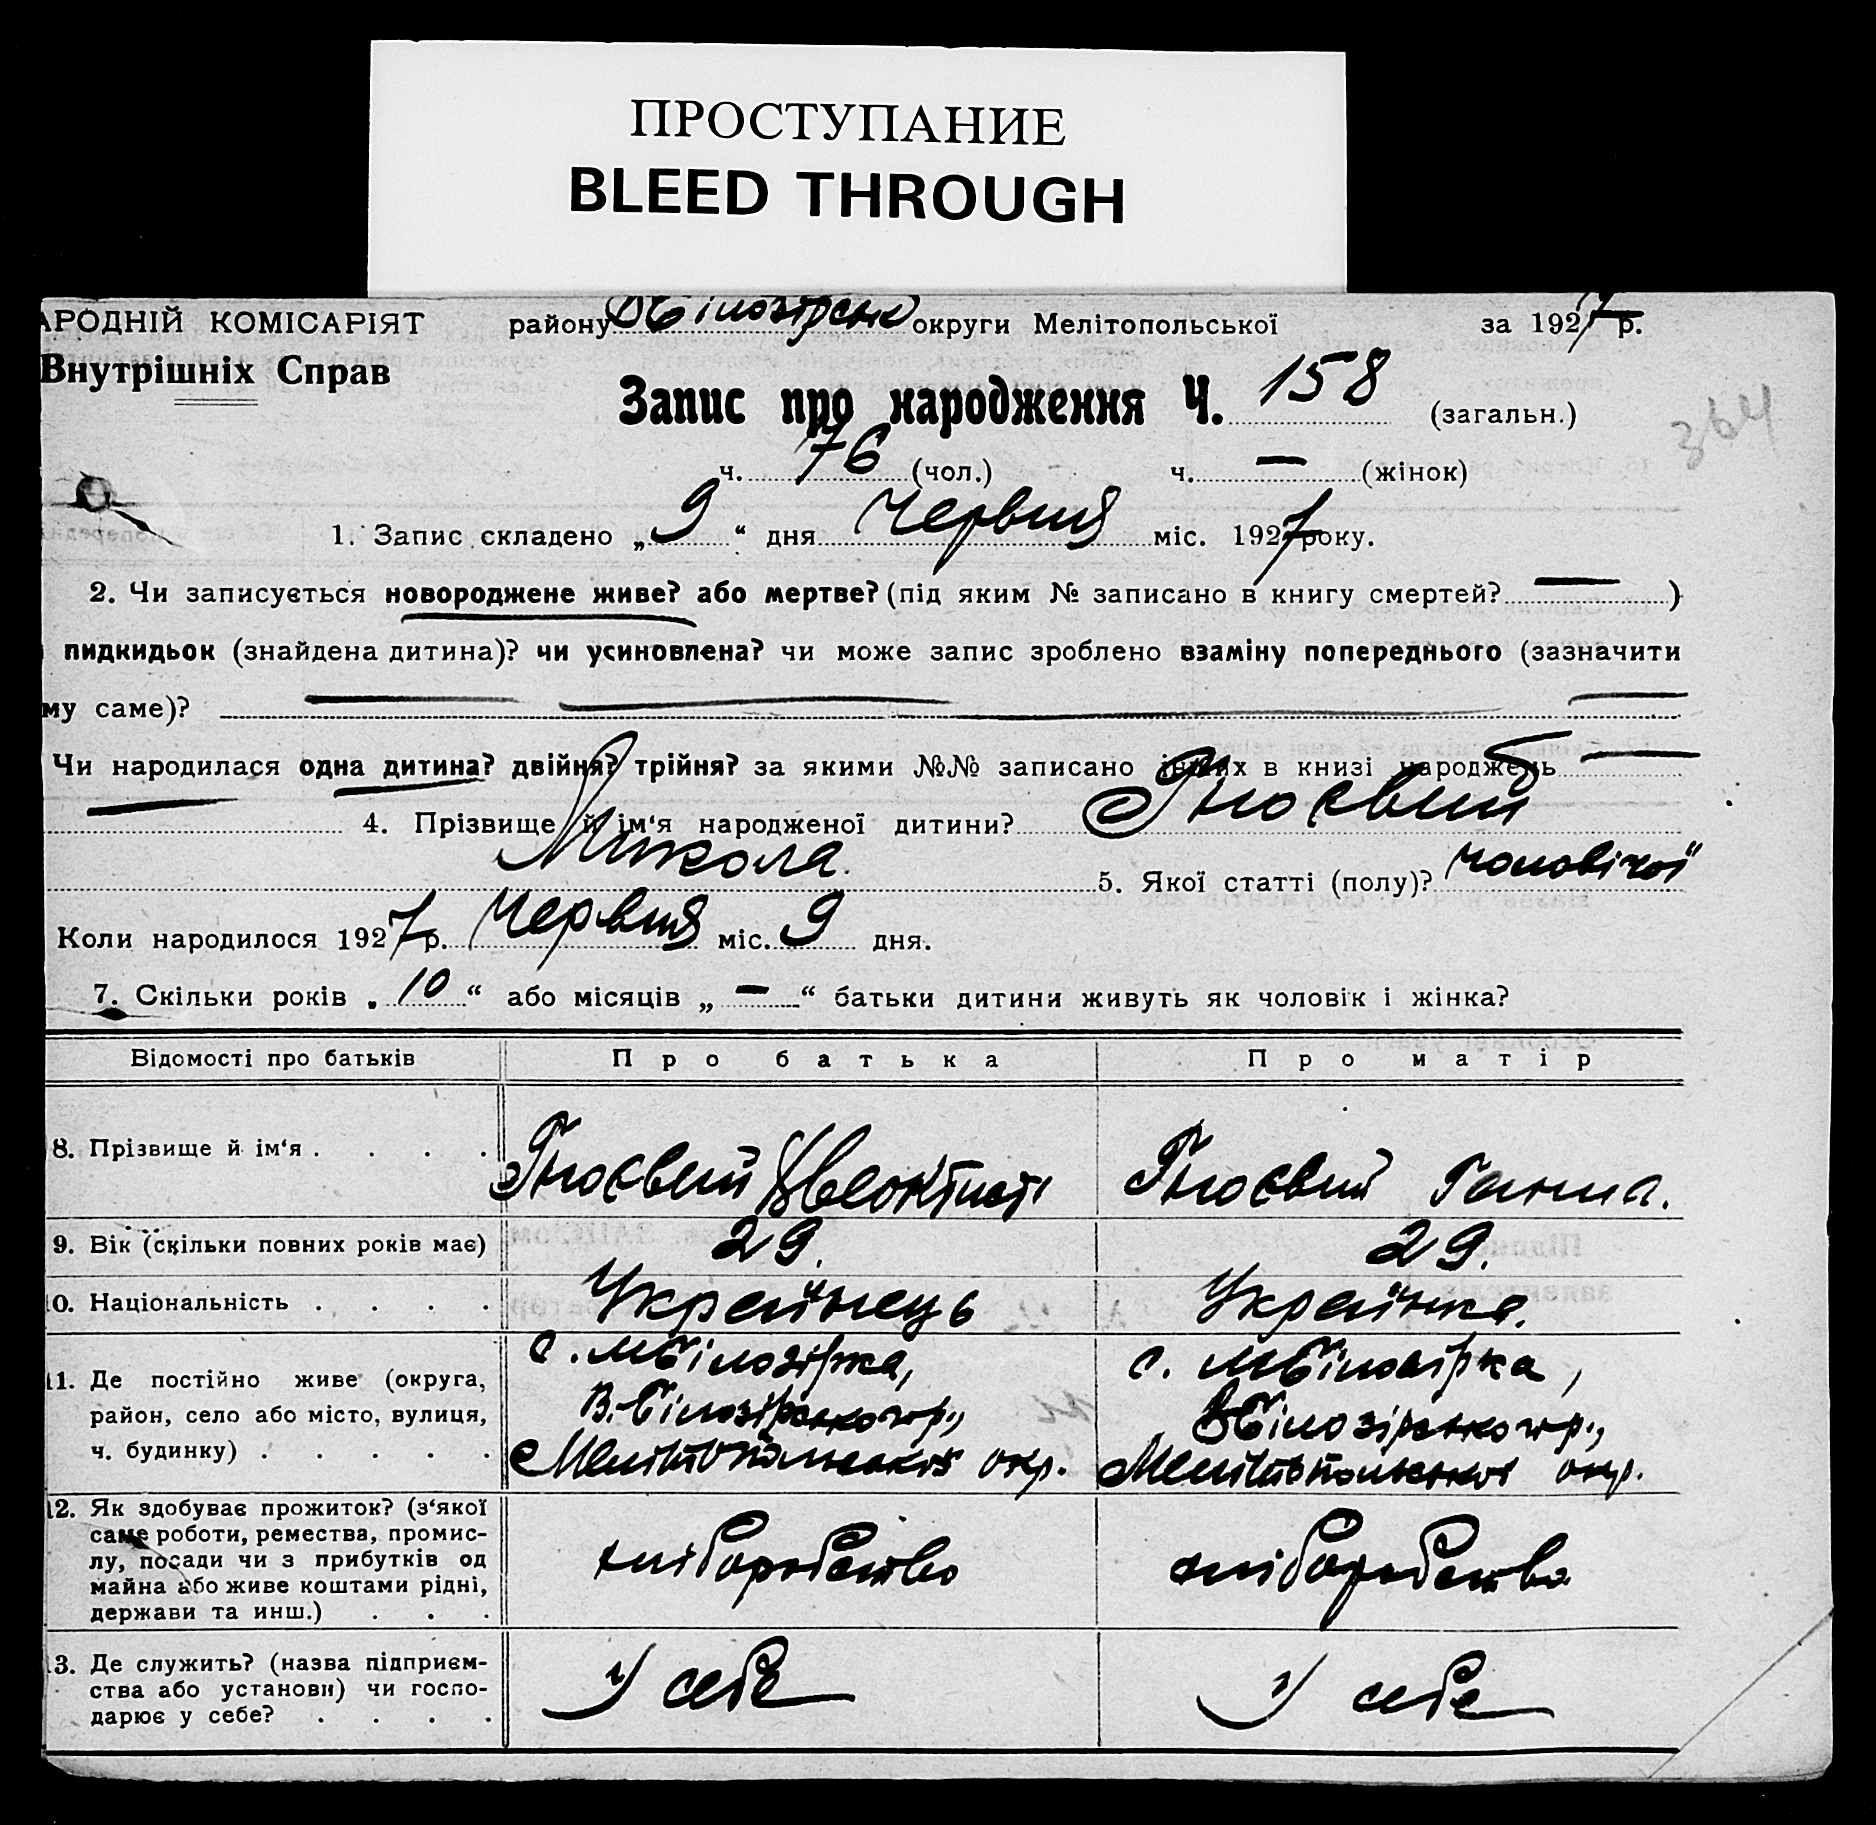 ПРОСТУПАНИЕ
BLEED THROUGH
АРОДНІЙ КОМІСАРІЯТ району В Білозірськ округи Мелітопольської за 1927 р.
Внутрішніх Справ
Запис про народження Ч. 158 (загальн.)
364
ч. 76 (чол.) ч. — (жінок)
1. Запис складено „9“ дня Червня міс. 1927 року.
2. Чи записується новороджене живе? або мертве? (під яким № записано в книгу смертей? — )
пидкидьок (знайдена дитина)? чи усиновлена? чи може запис зроблено взаміну попереднього (зазначити
му саме)? — — —
Чи народилася одна дитина? двійня? трійня? за якими №№ записано інших в книзі народжень —
— 4. Прізвище й ім‘я народженої дитини?
Микола. 5. Якої статті (полу)? чоловічої
Коли народилося 1927 р. Червня міс. 9 дня.
7. Скільки років „10“ або місяців „—“ батьки дитини живуть як чоловік і жінка?
Відомості про батьків Про батька Про матір
8. Прізвище й ім‘я . . . . Ганна.
9. Вік (скільки повних років має) 29. 29.
0. Національність . . . . Українець Українка.
11. Де постійно живе (округа, с. МБілозірка, с. МБілозірка,
район, село або місто, вулиця, В.-Білозірського р., ВБілозірського р.,
ч. будинку) . . . . . Мелітопольської окр. Мелітопольської окр.
12. Як здобуває прожиток? (з‘якої
саме роботи, ремества, промис-
лу, посади чи з прибутків од хліборобство хліборобство
майна або живе коштами рідні,
держави та инш.) . . .
3. Де служить? (назва підприєм-
ства або установи) чи госпо- У себе У себе
дарює у себе? . . . .